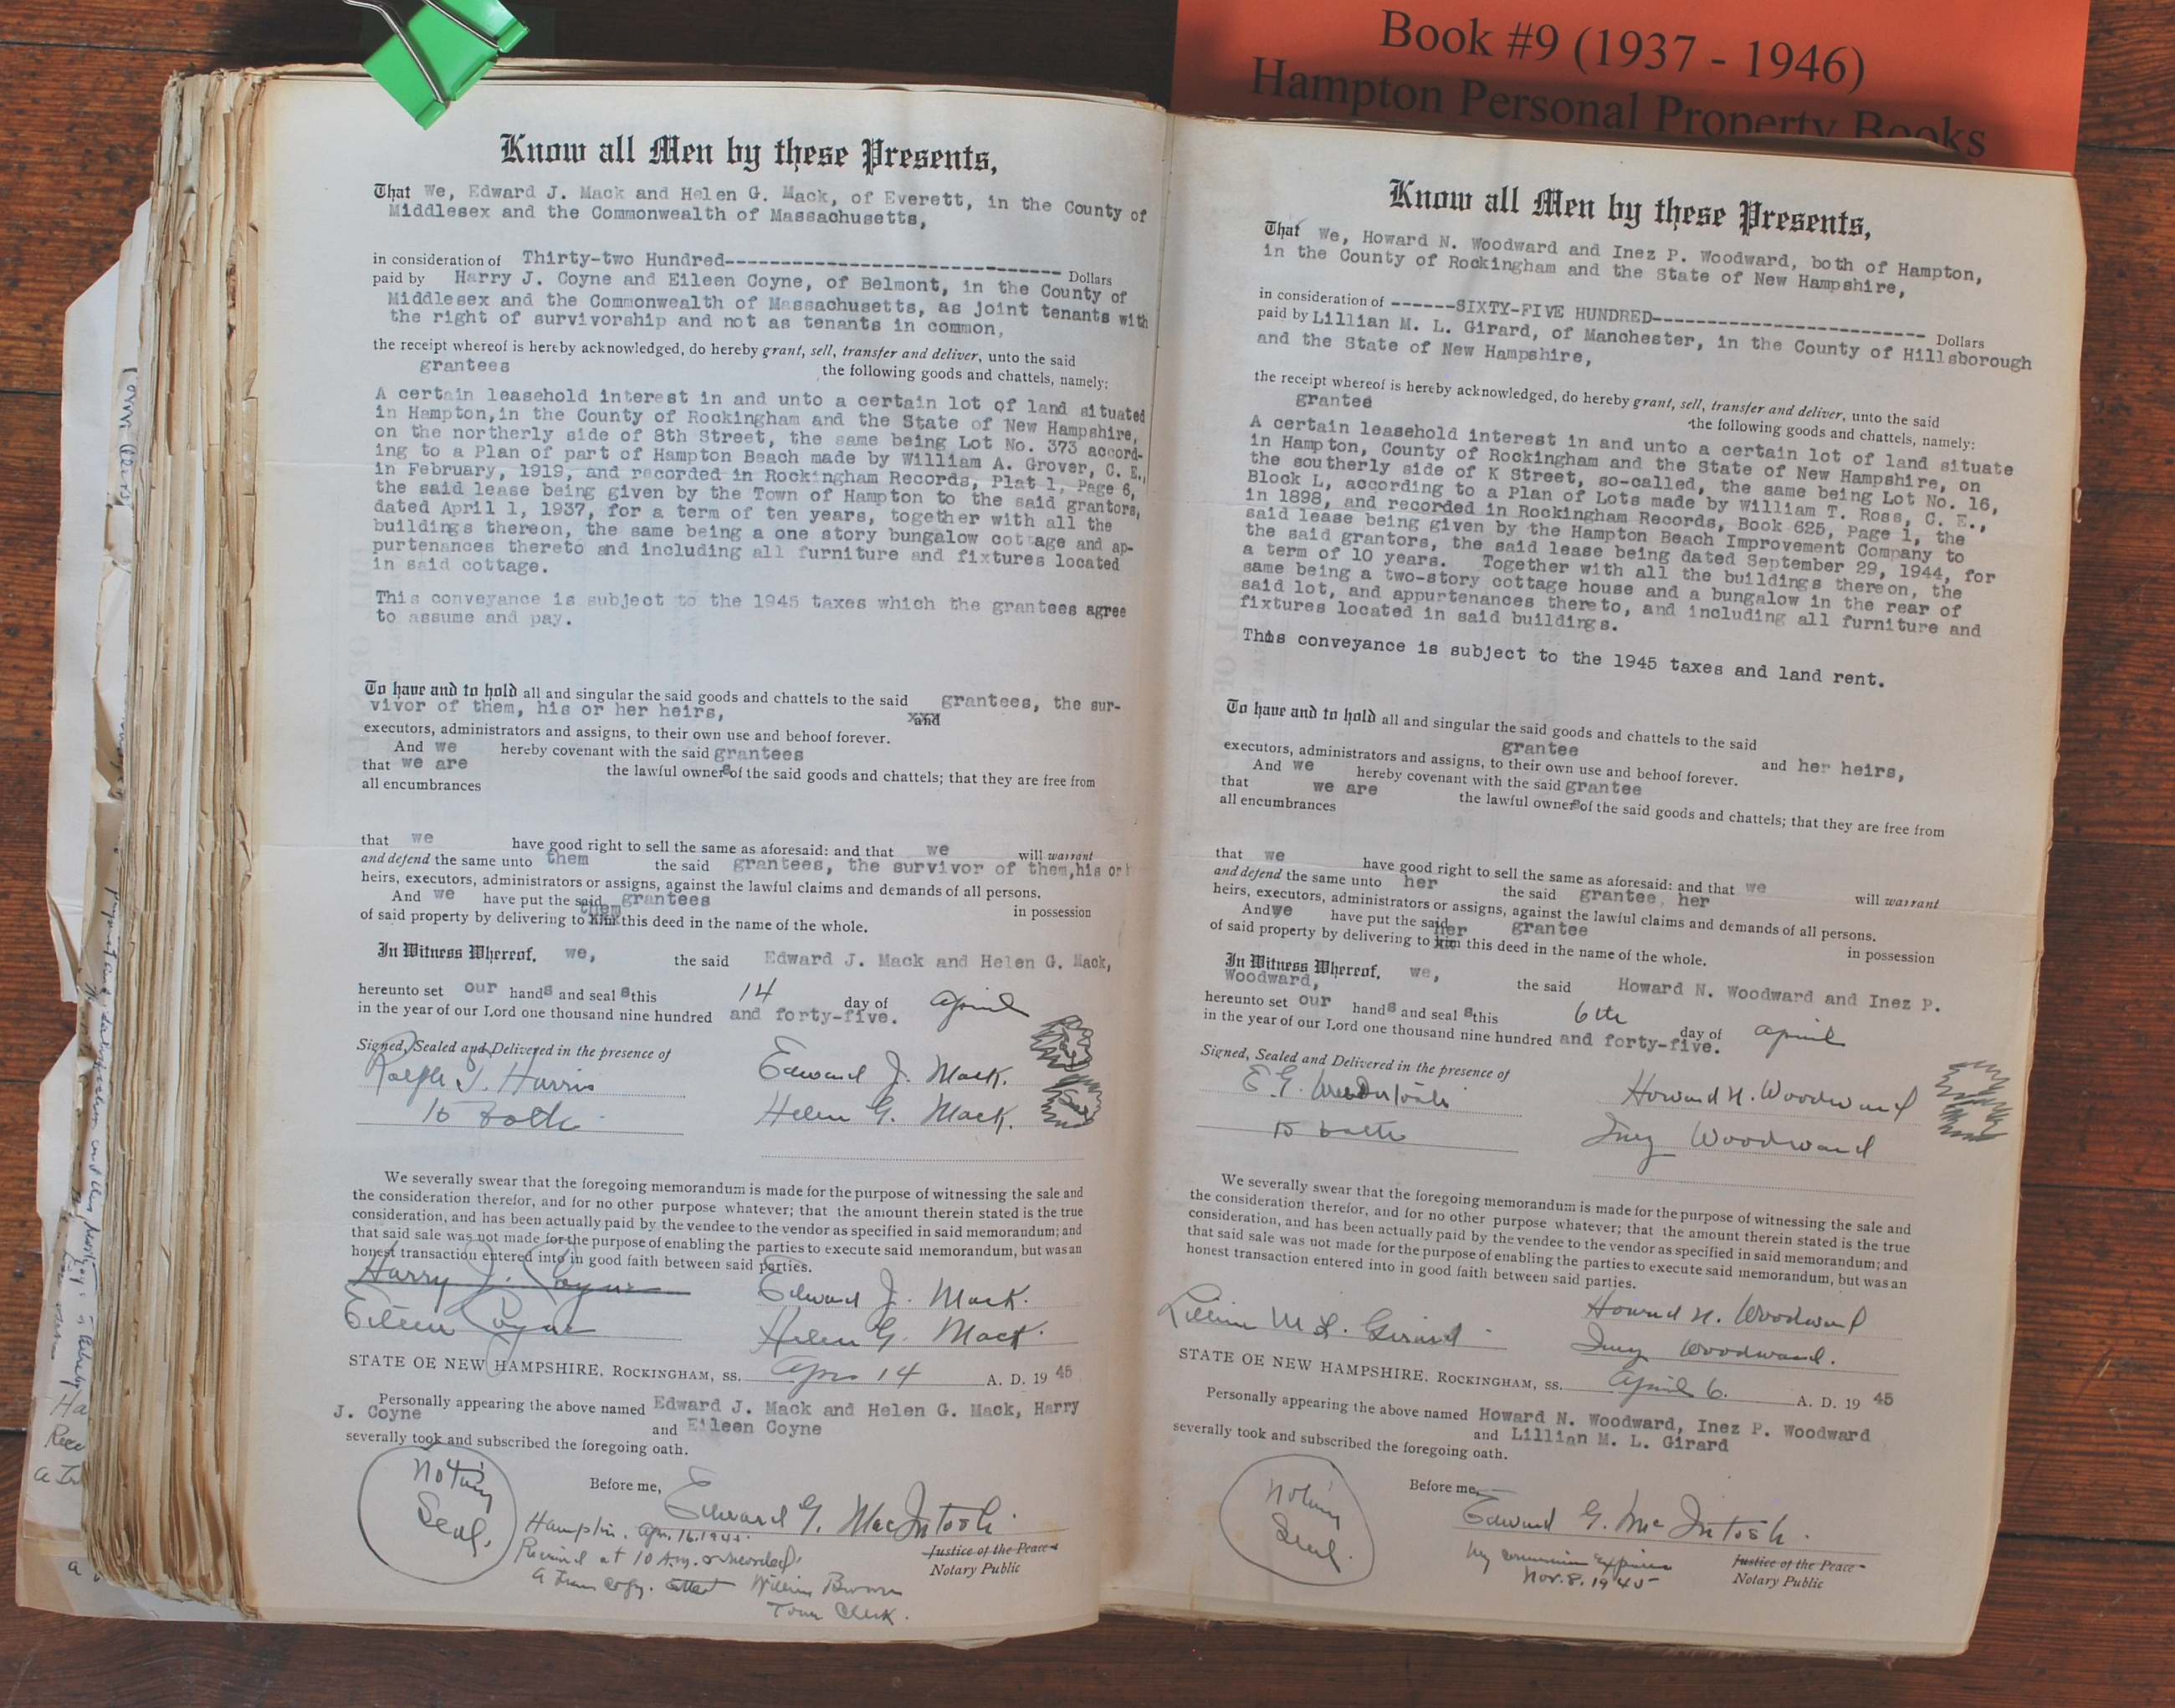 Book #9 (1937 - 1946)
Hampton Personal Property Books
Know all Men by these Presents,
That We, Edward J. Mack and Helen G. Mack, of Everett, in the County of
Middlesex and the Commonwealth of Massachusetts,
in consideration of Thirty-two Hundred------------------------------------ Dollars
paid by Harry J. Coyne and Eileen Coyne, of Belmont, in the County of
Middlesex and the Commonwealth of Massachusetts, as joint tenants with
the right of survivorship and not as tenants in common,
the receipt whereof is hereby acknowledged, do hereby grant, sell, transfer and deliver, unto the said
grantees the following goods and chattels, namely:
A certain leasehold interest in and unto a certain lot of land situated
in Hampton,in the County of Rockingham and the State of New Hampshire,
on the northerly side of 8th Street, the same being Lot No. 373 accord-
ing to a Plan of part of Hampton Beach made by William A. Grover, C. E.,
in February, 1919, and recorded in Rockingham Records, Plat 1, Page 6,
the said lease being given by the Town of Hampton to the said grantors,
dated April 1, 1937, for a term of ten years, together with all the
buildings thereon, the same being a one story bungalow cottage and ap-
purtenances thereto and including all furniture and fixtures located
in said cottage.
This conveyance is subject to the 1945 taxes which the grantees agree
to assume and pay.
To have and to hold all and singular the said goods and chattels to the said grantees, the sur-
vivor of them, his or her heirs, and
executors, administrators and assigns, to their own use and behoof forever.
And we hereby covenant with the said grantees
that we are the lawful owners of the said goods and chattels; that they are free from
all encumbrances
that we have good right to sell the same as aforesaid: and that we will warrant
and defend the same unto them the said grantees, the survivor of them,his or h
heirs, executors, administrators or assigns, against the lawful claims and demands of all persons.
And we have put the said grantees in possession
of said property by delivering to him them this deed in the name of the whole.
In Witness Whereof, we, the said Edward J. Mack and Helen G. Mack,
hereunto set our hands and seal s this 14 day of April
in the year of our Lord one thousand nine hundred and forty-five.
Signed, Sealed and Delivered in the presence of
Ralph J. Harris Edward J. Mack.
to both Helen G. Mack.
We severally swear that the foregoing memorandum is made for the purpose of witnessing the sale and
the consideration therefor, and for no other purpose whatever; that the amount therein stated is the true
consideration, and has been actually paid by the vendee to the vendor as specified in said memorandum; and
that said sale was not made for the purpose of enabling the parties to execute said memorandum, but was an
honest transaction entered into in good faith between said parties.
Harry J. Coyne Edward J. Mack.
Eileen Coyne Helen G. Mack.
STATE OE NEW HAMPSHIRE, ROCKINGHAM, ss. Apr 14 A. D. 19 45
Personally appearing the above named Edward J. Mack and Helen G. Mack, Harry
J. Coyne and Eileen Coyne
severally took and subscribed the foregoing oath.
Notary
Seal.
Before me, Edward G. MacIntosh.
Justice of the Peace
Notary Public
Hampton. Apr. 16. 1945.
Received at 10 A.m. & recorded,
A True Copy. Attest William Brown
Town Clerk.
Know all Men by these Presents,
That We, Howard N. Woodward and Inez P. Woodward, both of Hampton,
in the County of Rockingham and the State of New Hampshire,
in consideration of ------SIXTY-FIVE HUNDRED---------------------------- Dollars
paid by Lillian M. L. Girard, of Manchester, in the County of Hillsborough
and the State of New Hampshire,
the receipt whereof is hereby acknowledged, do hereby grant, sell, transfer and deliver, unto the said
grantee the following goods and chattels, namely:
A certain leasehold interest in and unto a certain lot of land situate
in Hampton, County of Rockingham and the State of New Hampshire, on
the southerly side of K Street, so-called, the same being Lot No. 16,
Block L, according to a Plan of Lots made by William T. Ross, C. E.,
in 1898, and recorded in Rockingham Records, Book 625, Page 1, the
said lease being given by the Hampton Beach Improvement Company to
the said grantors, the said lease being dated September 29, 1944, for
a term of 10 years. Together with all the buildings thereon, the
same being a two-story cottage house and a bungalow in the rear of
said lot, and appurtenances thereto, and including all furniture and
fixtures located in said buildings.
This conveyance is subject to the 1945 taxes and land rent.
To have and to hold all and singular the said goods and chattels to the said
grantee and her heirs,
executors, administrators and assigns, to their own use and behoof forever.
And we hereby covenant with the said grantee
that we are the lawful owners of the said goods and chattels; that they are free from
all encumbrances
that we have good right to sell the same as aforesaid: and that we will warrant
and defend the same unto her the said grantee, her
heirs, executors, administrators or assigns, against the lawful claims and demands of all persons.
And we have put the said grantee in possession
of said property by delivering to him her this deed in the name of the whole.
In Witness Whereof, we, the said Howard N. Woodward and Inez P.
Woodward,
hereunto set our hands and seal s this 6th day of April
in the year of our Lord one thousand nine hundred and forty-five.
Signed, Sealed and Delivered in the presence of
Howard N. Woodward
to both Inez Woodward
We severally swear that the foregoing memorandum is made for the purpose of witnessing the sale and
the consideration therefor, and for no other purpose whatever; that the amount therein stated is the true
consideration, and has been actually paid by the vendee to the vendor as specified in said memorandum; and
that said sale was not made for the purpose of enabling the parties to execute said memorandum, but was an
honest transaction entered into in good faith between said parties.
Lillian M L. Girard Howard N. Woodward
Inez Woodward.
STATE OE NEW HAMPSHIRE, ROCKINGHAM, ss. April 6. A. D. 19 45
Personally appearing the above named Howard N. Woodward, Inez P. Woodward
and Lillian M. L. Girard
severally took and subscribed the foregoing oath.
Notary
Seal.
Before me, Edward G. McIntosh.
My commission Expires
Nov. 8, 1945
Justice of the Peace
Notary Public